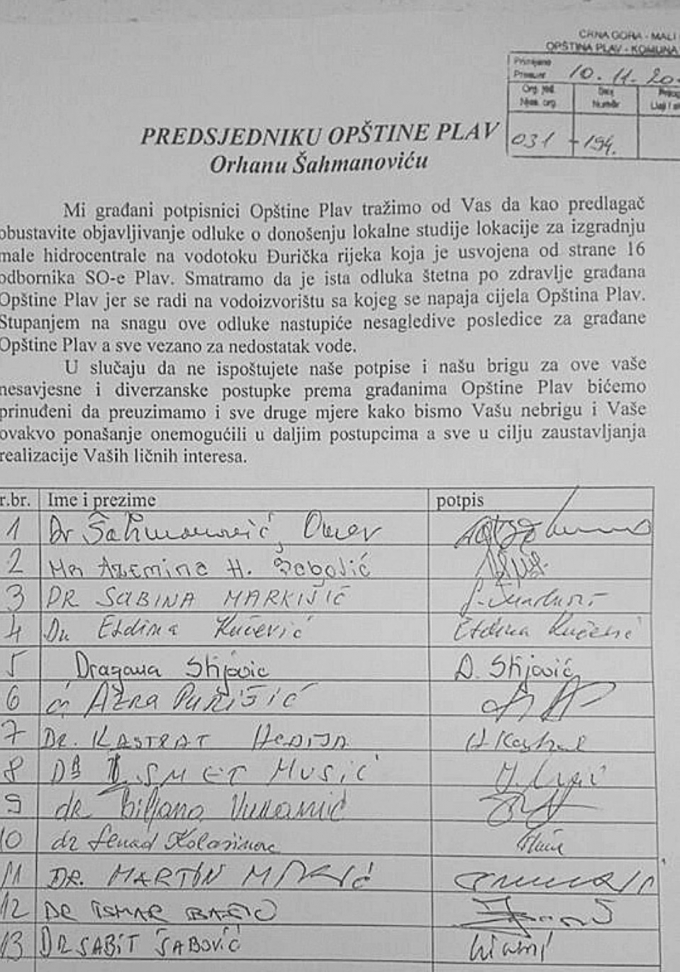 CRNA GORA - MALI
OPŠTINA PLAV - KOMUNA
Primljeno
10. 11. 20
Org. jed. Broj
Njes. org. Numër
031 - 194.
PREDSJEDNIKU OPŠTINE PLAV
Orhanu Šahmanoviću
Mi građani potpisnici Opštine Plav tražimo od Vas da kao predlagač
obustavite objavljivanje odluke o donošenju lokalne studije lokacije za izgradnju
male hidrocentrale na vodotoku Đurička rijeka koja je usvojena od strane 16
odbornika SO-e Plav. Smatramo da je ista odluka štetna po zdravlje građana
Opštine Plav jer se radi na vodoizvorištu sa kojeg se napaja cijela Opština Plav.
Stupanjem na snagu ove odluke nastupiće nesagledive posledice za građane
Opštine Plav a sve vezano za nedostatak vode.
U slučaju da ne ispoštujete naše potpise i našu brigu za ove vaše
nesavjesne i diverzanske postupke prema građanima Opštine Plav bićemo
prinuđeni da preuzimamo i sve druge mjere kako bismo Vašu nebrigu i Vaše
ovakvo ponašanje onemogućili u daljim postupcima a sve u cilju zaustavljanja
realizacije Vaših ličnih interesa.
r.br. Ime i prezime potpis
1 Dr Šahmanović Omer
2 Azemina H.
3 DR SABINA MARKIŠIĆ
4 Dr Eldina Kučević Eldina Kučević
5 Dragana Stijović D. Stijović
6 AZRA PURIŠIĆ
7 DR. KASTRAT HEDIJA H Kastrat
8 ISMET MUSIĆ
9 dr Biljana
10 dr Senad Kolašinac
11 DR. MARTIN
12 DR ISMAR BAŠIĆ
13 DR SABIT ŠABOVIĆ